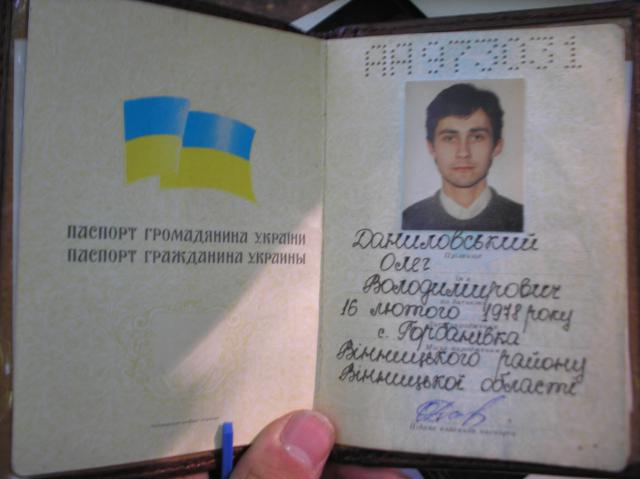 ПАСПОРТ ГРОМАДЯНИНА УКРАЇНИ
ПАСПОРТ ГРАЖДАНИНА УКРАИНЫ
АА973031
Даниловський
Прізвище
Олег
Ім'я
Володимирович
по батькові
16 лютого 1978 року
с. Горбанівка
Вінницького району
Вінницької області
Підпис власника паспорта